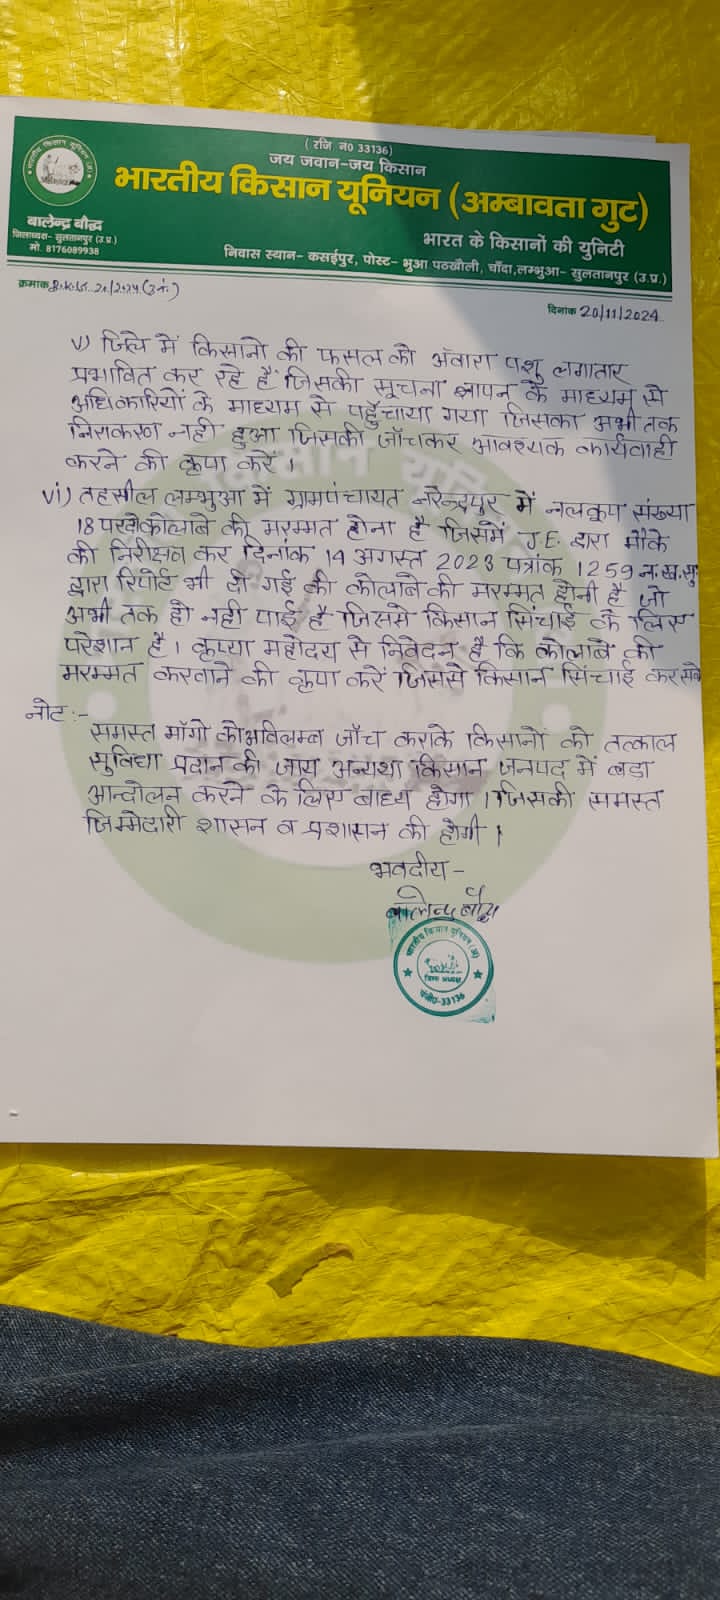 ( रजि न0 33136)
जय जवान-जय किसान
भारतीय किसान यूनियन (अम्बावता गुट)
भारत के किसानों की युनिटी
बालेन्द्र बौद्ध
जिलाध्यक्ष- सुलतानपुर (उ.प्र.)
मो. 8176089938
निवास स्थान- कसईपुर, पोस्ट- भुआ पठखौली, चाँदा,लम्भुआ- सुलतानपुर (उ.प्र.)
क्रमांक
दिनांक 20/11/2024
v) जिले में किसानो की फसल को अवारा पशु लगातार
प्रभावित कर रहे हैं जिसकी सूचना ज्ञापन के माध्यम से
अधिकारियों के माध्यम से पहुँचाया गया जिसका अभी तक
निराकरण नही हुआ जिसकी जाँचकर आवश्यक कार्यवाही
करने की कृपा करें।
vi) तहसील लम्भुआ में ग्रामपंचायत नरेन्द्रपुर में नलकूप संख्या
18 कोलाबे की मरम्मत होना है जिसमें J.E. द्वारा मौके
की निरीक्षण कर दिनांक 14 अगस्त 2023 पत्रांक 1259 न.ख.सु.
द्वारा रिपोर्ट भी दी गई की कोलाबे की मरम्मत होनी है जो
अभी तक हो नही पाई है जिससे किसान सिंचाई के लिए
परेशान है। कृप्या महोदय से निवेदन है कि कोलाबे की
मरम्मत करवाने की कृपा करें जिससे किसान सिंचाई कर सके
नोट:-
समस्त माँगो को अविलम्ब जाँच कराके किसानो को तत्काल
सुविधा प्रदान की जाय अन्यथा किसान जनपद में बडा
आन्दोलन करने के लिए बाध्य होगा। जिसकी समस्त
जिम्मेदारी शासन व प्रशासन की होगी।
भवदीय-
बालेन्द्र बौद्ध
भारतीय किसान यूनियन (अ)
जिला अध्यक्ष
पंजी0-33136